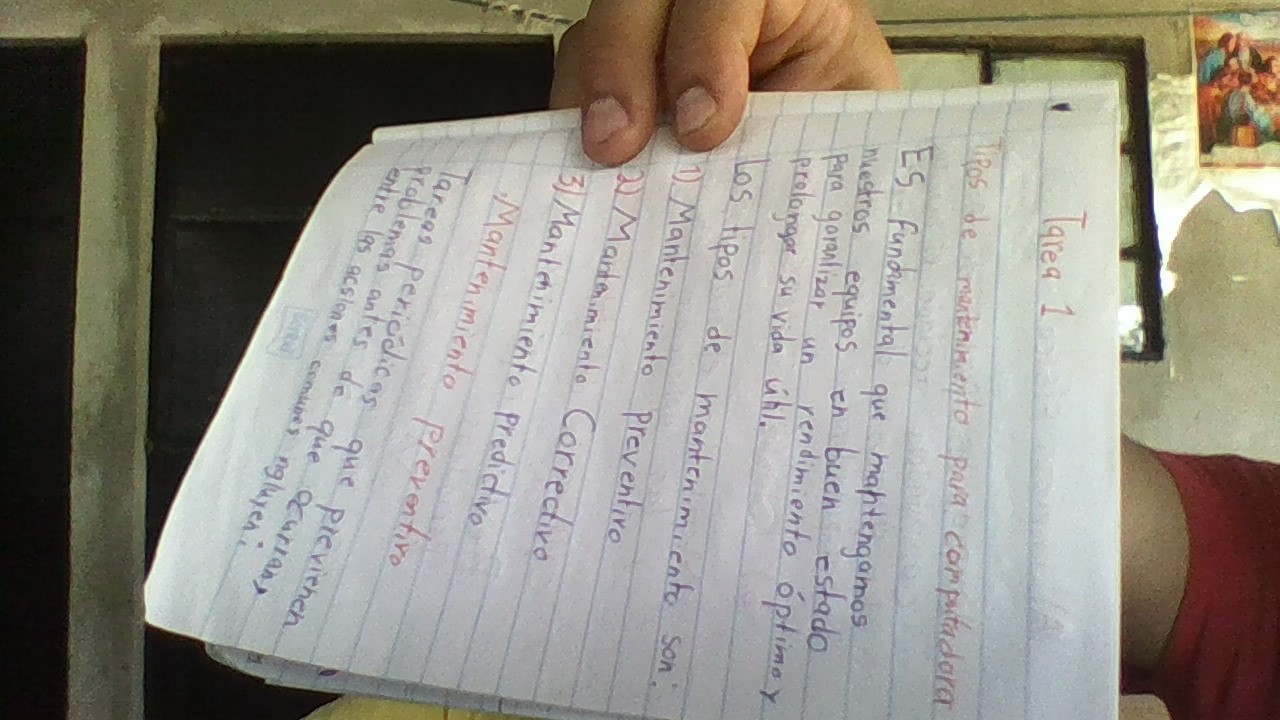 Tarea 1
Tipos de mantenimiento para computadora
Es fundamental que mantengamos
nuestros equipos en buen estado
para garantizar un rendimiento óptimo y
prolongar su vida útil.
Los tipos de mantenimiento son:
1) Mantenimiento preventivo
2) Mantenimiento Correctivo
3) Mantenimiento predictivo
. Mantenimiento preventivo
Tareas periódicas que previenen
problemas antes de que ocurran,
entre las acsiones comunes